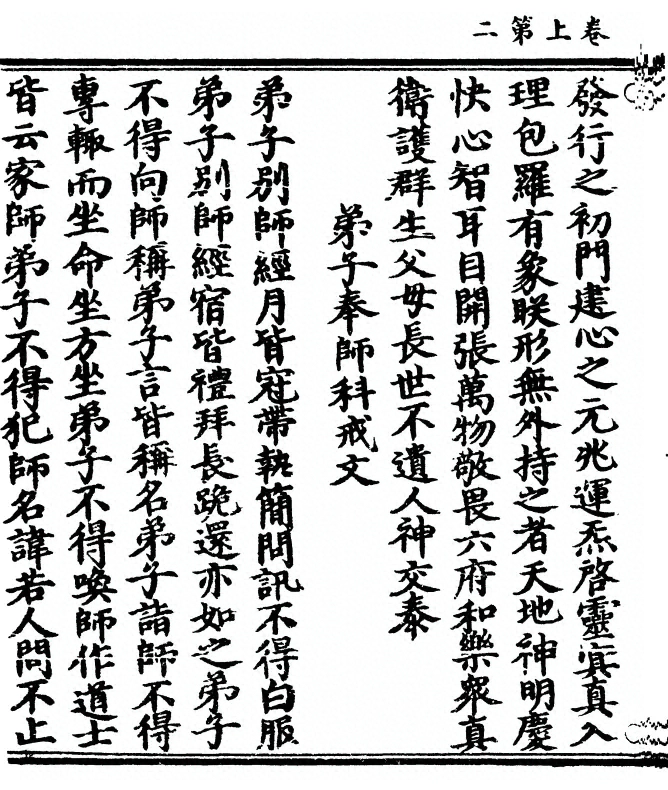 卷上第二
發行之初門建心之元兆運炁啓靈寘真入
理包羅有象昳形無外持之者天地神明慶
快心智耳目開張萬物敬畏六府和樂衆真
衛護群生父母長世不遺人神交泰
弟子奉師科戒文
弟子別師經月皆冠帶執簡問訊不得白服
弟子別師經宿皆禮拜長跪還亦如之弟子
不得向師稱弟子言皆稱名弟子詣師不得
專輙而坐命坐方坐弟子不得喚師作道士
皆云家師弟子不得犯師名諱若人問不止